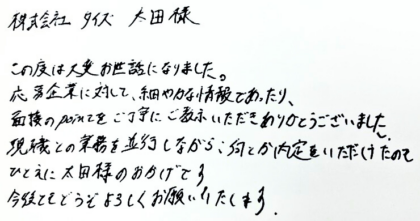 株式会社 タイズ 太田様
この度は大変お世話になりました。
応募企業に対して、細やかな情報であったり、
面接のpointをご丁寧にご教示いただきありがとうございました。
現職との業務を並行しながら、何とか内定をいただけたのも
ひとえに太田様のおかげです
今後ともどうぞよろしくお願いいたします.